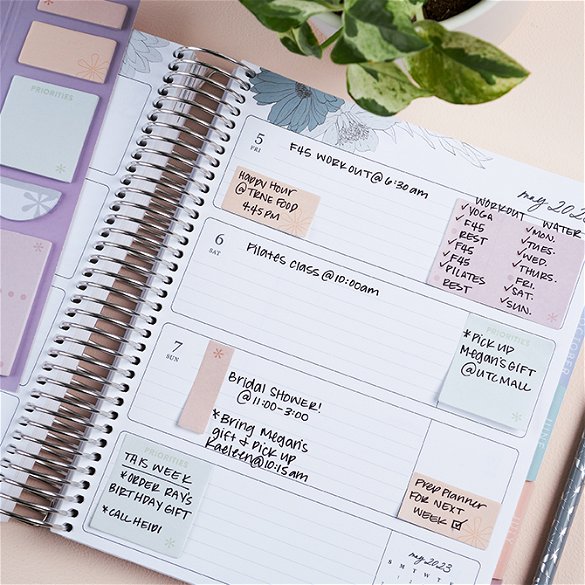 PRIORITIES
5
FRI
F45 WORKOUT @ 6:30am
may 202
HAPPY HOUR
@ TRNE FOOD
4:45 PM
WORKOUT
✓YOGA
✓F45
REST
✓F45
✓F45
✓PILATES
REST
WATER
✓MON.
✓TUES.
✓WED.
✓THURS.
FRI.
✓SAT.
✓SUN.
6
SAT
Pilates class @ 10:00am
PRIORITIES
*PICK UP
Megan's GIFT
@ UTC MALL
7
SUN
Bridal SHOWER!
@ 11:00-3:00
*Bring Megan's
gift & pick up
Kaeleen @ 10:15am
PRIORITIES
THIS WEEK
*ORDER RAY'S
BIRTHDAY GIFT
*CALL HEIDI
Prep Planner
FOR NEXT
WEEK ☑
may 2023
S M T W T F S
OCTOBER
JUNE
JULY